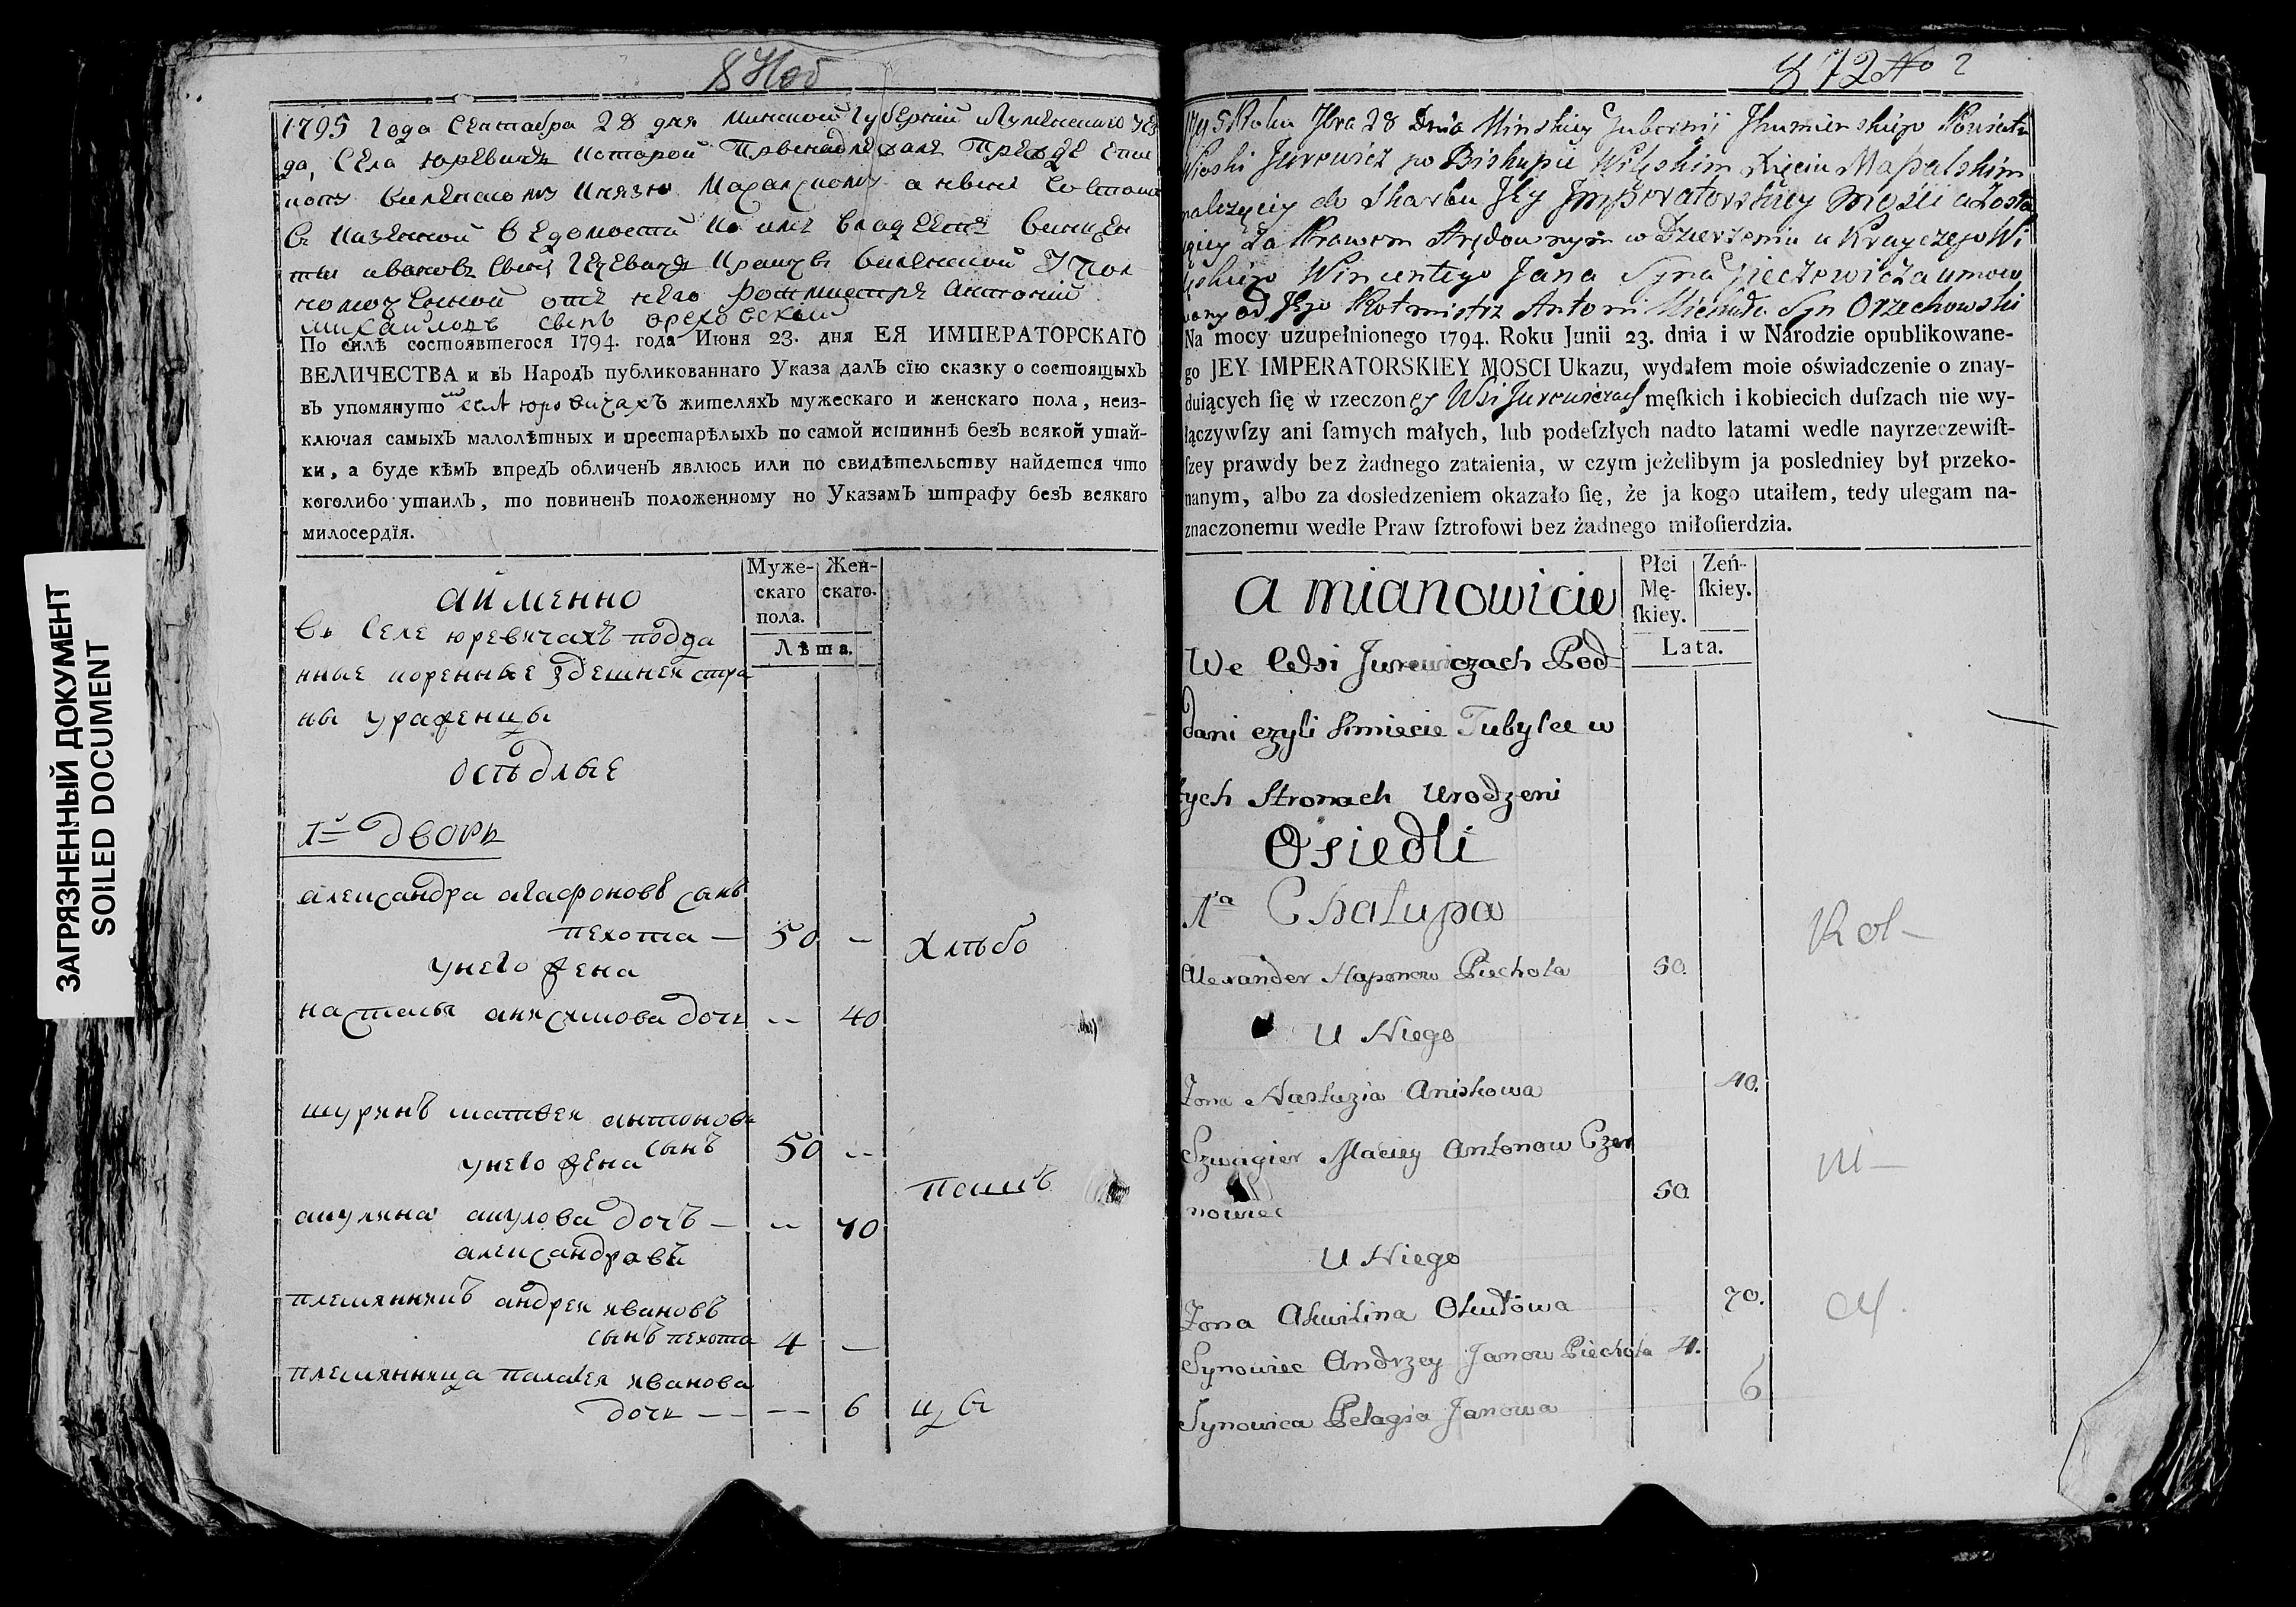 ЗАГРЯЗНЕННЫЙ ДОКУМЕНТ
SOILED DOCUMENT
1795 Года Сентября 28 дня Минской Губерний Игуменского уез
да, Села Юревичъ которой Принадлежалъ Прежде епи
копу Виленскому Князю Масальскому а нынѣ состои
въ Казенной Ведомости
ивановъ Сынъ
отъ него Ротмистръ Антоній
Михайловъ сынъ Ореховский
По силѣ состоявшегося 1794. года Июня 23. дня ЕЯ ИМПЕРАТОРСКАГО
ВЕЛИЧЕСТВА и въ Народъ публикованнаго Указа далъ сїю сказку о состоящыхъ
въ упомянутомъ селе юревичахъ жителяхъ мужескаго и женскаго пола, неиз-
ключая самыхъ малолѣтных и престарѣлыхъ по самой истиннѣ безъ всякой утай-
ки, а буде кѣмъ впредъ обличенъ явлюсь или по свидѣтельству найдется что
коголибо утаилъ, то повиненъ положенному по Указамъ штрафу безъ всякаго
милосердїя.
Муже-
скаго
пола.
Жен-
скаго.
Лѣта.
а именно
въ Селе юревичахъ подда
нные коренные здешнея стра
ны уроженцы
осѣдлые
1й дворъ
александра агафоновъ сынъ
пехота — 50 —
хлѣбо
у него жена
настасья анисимова дочь -- 40
шуринъ матвей антоновъ
сынъ 50 --
у него жена
пашъ
акулина акулова дочь — -- 70
александровъ
племянникъ андреи ивановъ
сынъ пехота 4 —
племянница палагея иванова
дочь — -- 6
872 No 2
1795 Roku 7bra 28 Dnia Minskiey Gubernij Ihumienskiego Powiatu
Wioski Jurewicz po Biskupie Wileńskim Xięciu Massalskim
należącey do Skarbu Jey Imperatorskiey Mości a Zosta
iącey za Prawem Arędownym w Dzierżeniu u Krayczego Wi
leńskiego Wincentego Jana Syna Gieczewicza umoco
wany od Jego Rotmistrz Antoni Michała Syn Orzechowski
Na mocy uzupełnionego 1794. Roku Junii 23. dnia i w Narodzie opublikowane-
go JEY IMPERATORSKIEY MOSCI Ukazu, wydałem moie oświadczenie o znay-
duiących ſię w rzeczoney Wsi Jurewiczach męſkich i kobiecich duſzach nie wy-
łączywſzy ani ſamych małych, lub podeſzłych nadto latami wedle nayrzeczewiſt-
ſzey prawdy bez żadnego zataienia, w czym jeżelibym ja posledniey był przeko-
nanym, albo za dosledzeniem okazało ſię, że ja kogo utaiłem, tedy ulegam na-
znaczonemu wedle Praw ſztrofowi bez żadnego miłoſierdzia.
Płci
Mę-
ſkiey.
Zeń-
ſkiey.
Lata.
a mianowicie
We Wsi Jurewiczach Pod
dani czyli Kmiecie Tubylce w
tych Stronach Urodzeni
Osiedli
1a Chałupa
Alexander Haponow Piechota 50.
Rol—
U Niego
Zona Nastazia Aniskowa 40.
Szwagier Maciey Antonow Czer
nowiec 50.
U Niego
Zona Akwilina Okułowa 70.
Synowiec Andrzey Janow Piechota 4.
Synowica Pelagia Janowa 6